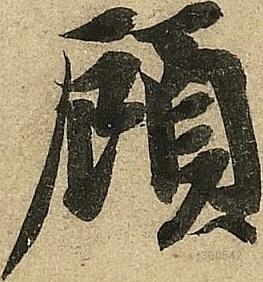 顧
a1300542